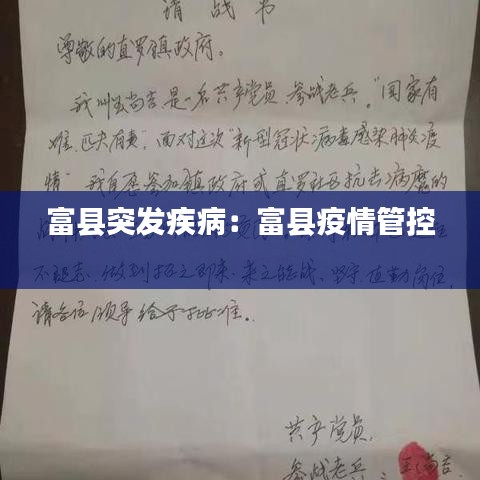 请战书
尊敬的直罗镇政府。
我叫王尚吉是一名共产党员、参战老兵。"国家有
难、匹夫有责",面对这次"新型冠状病毒感染肺炎疫
情"我自愿参加镇政府或直罗社区抗击病魔的
富县突发疾病：富县疫情管控
做到招之即来、来之能战、坚守
岗位,
请各位领导给予批准。
共产党员、
参战老兵 王尚吉